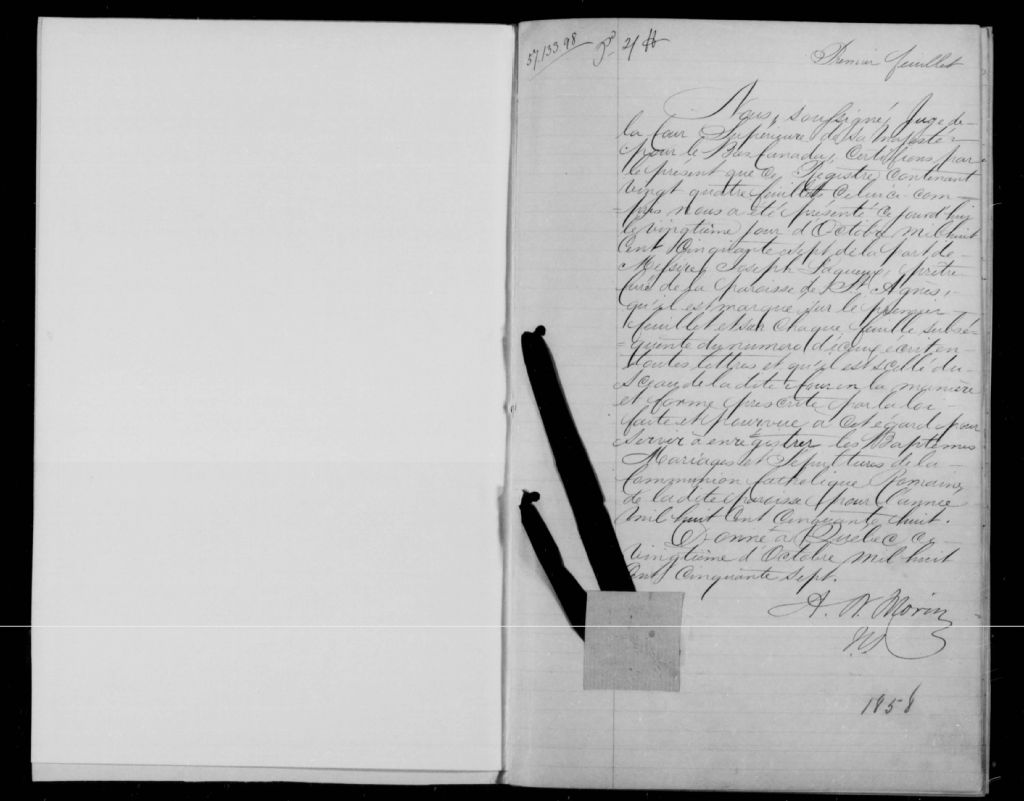 57.133.98
24 ff
Premier feuillet
Nous, soussigné, Juge de
la Cour Supérieure de Sa Majesté
pour le Bas Canada, Certifions par
le présent que ce Registre contenant
vingt quatre feuillets celui ci com-
=pris nous a été présenté ce jourd'hui
le vingtième jour d'Octobre mil huit
cent cinquante sept de la part de
Messire Joseph Lagueux, prêtre
curé de la paroisse de Ste Agnès,
qu'il est marqué sur le premier
feuillet et sur chaque feuille subsé-
=quente du numero d'iceux ecrit en
toutes lettres et qu'il est scellé du
sçeau de la dite Cour en la manière
et forme prescrite par la loi
faite et pourvue à cet égard pour
servir à enrégistrer les Baptêmes
Mariages et Sépultures de la
Communion Catholique Romaine
de la dite paroisse pour l'année
mil huit cent cinquante huit.
Donné à Québec ce
vingtième d'Octobre mil huit
cent cinquante sept.
A. N. Morin
1858